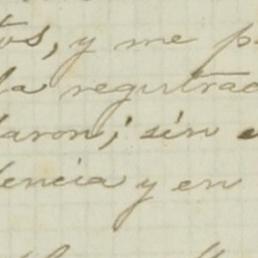 tos, y me p
la registrad
laron; sin e
dencia y en